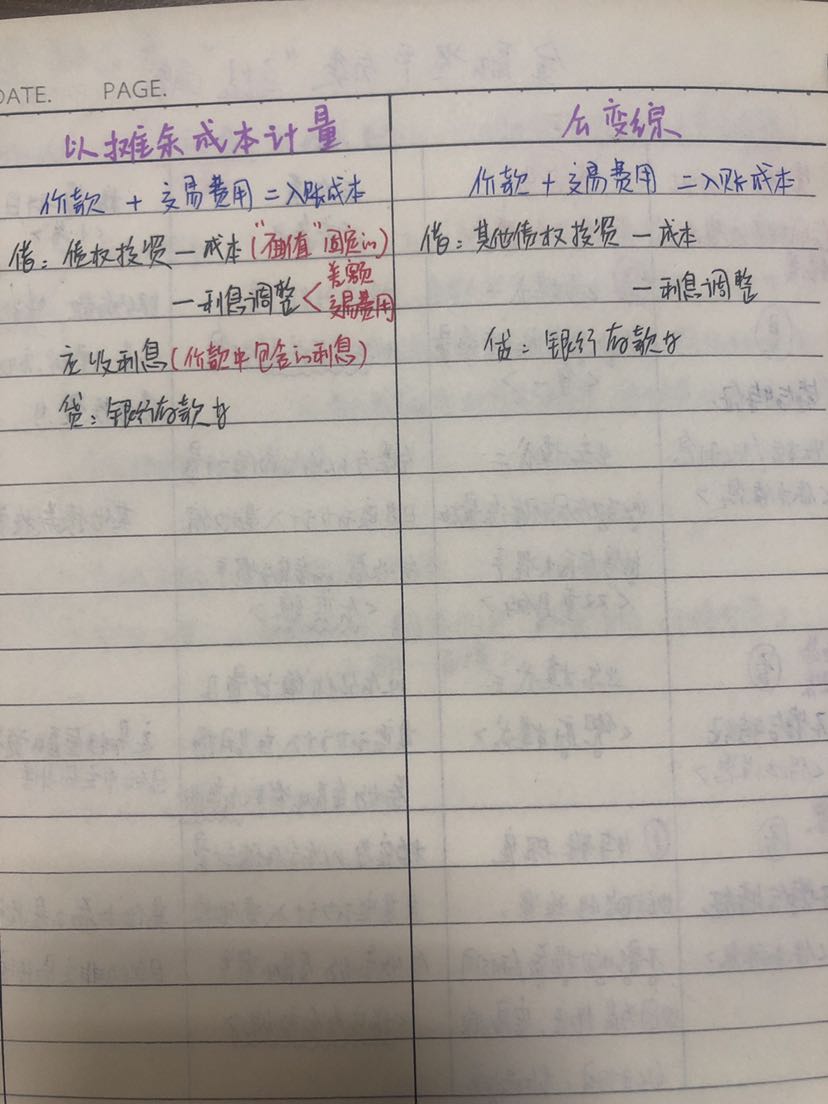 DATE. PAGE.
以摊余成本计量
价款 + 交易费用 = 入账成本
借：债权投资 — 成本 ("面值"固定的)
— 利息调整 < 差额
交易费用
应收利息 (价款中包含的利息)
贷：银行存款等
公变综
价款 + 交易费用 = 入账成本
借：其他债权投资 — 成本
— 利息调整
贷：银行存款等